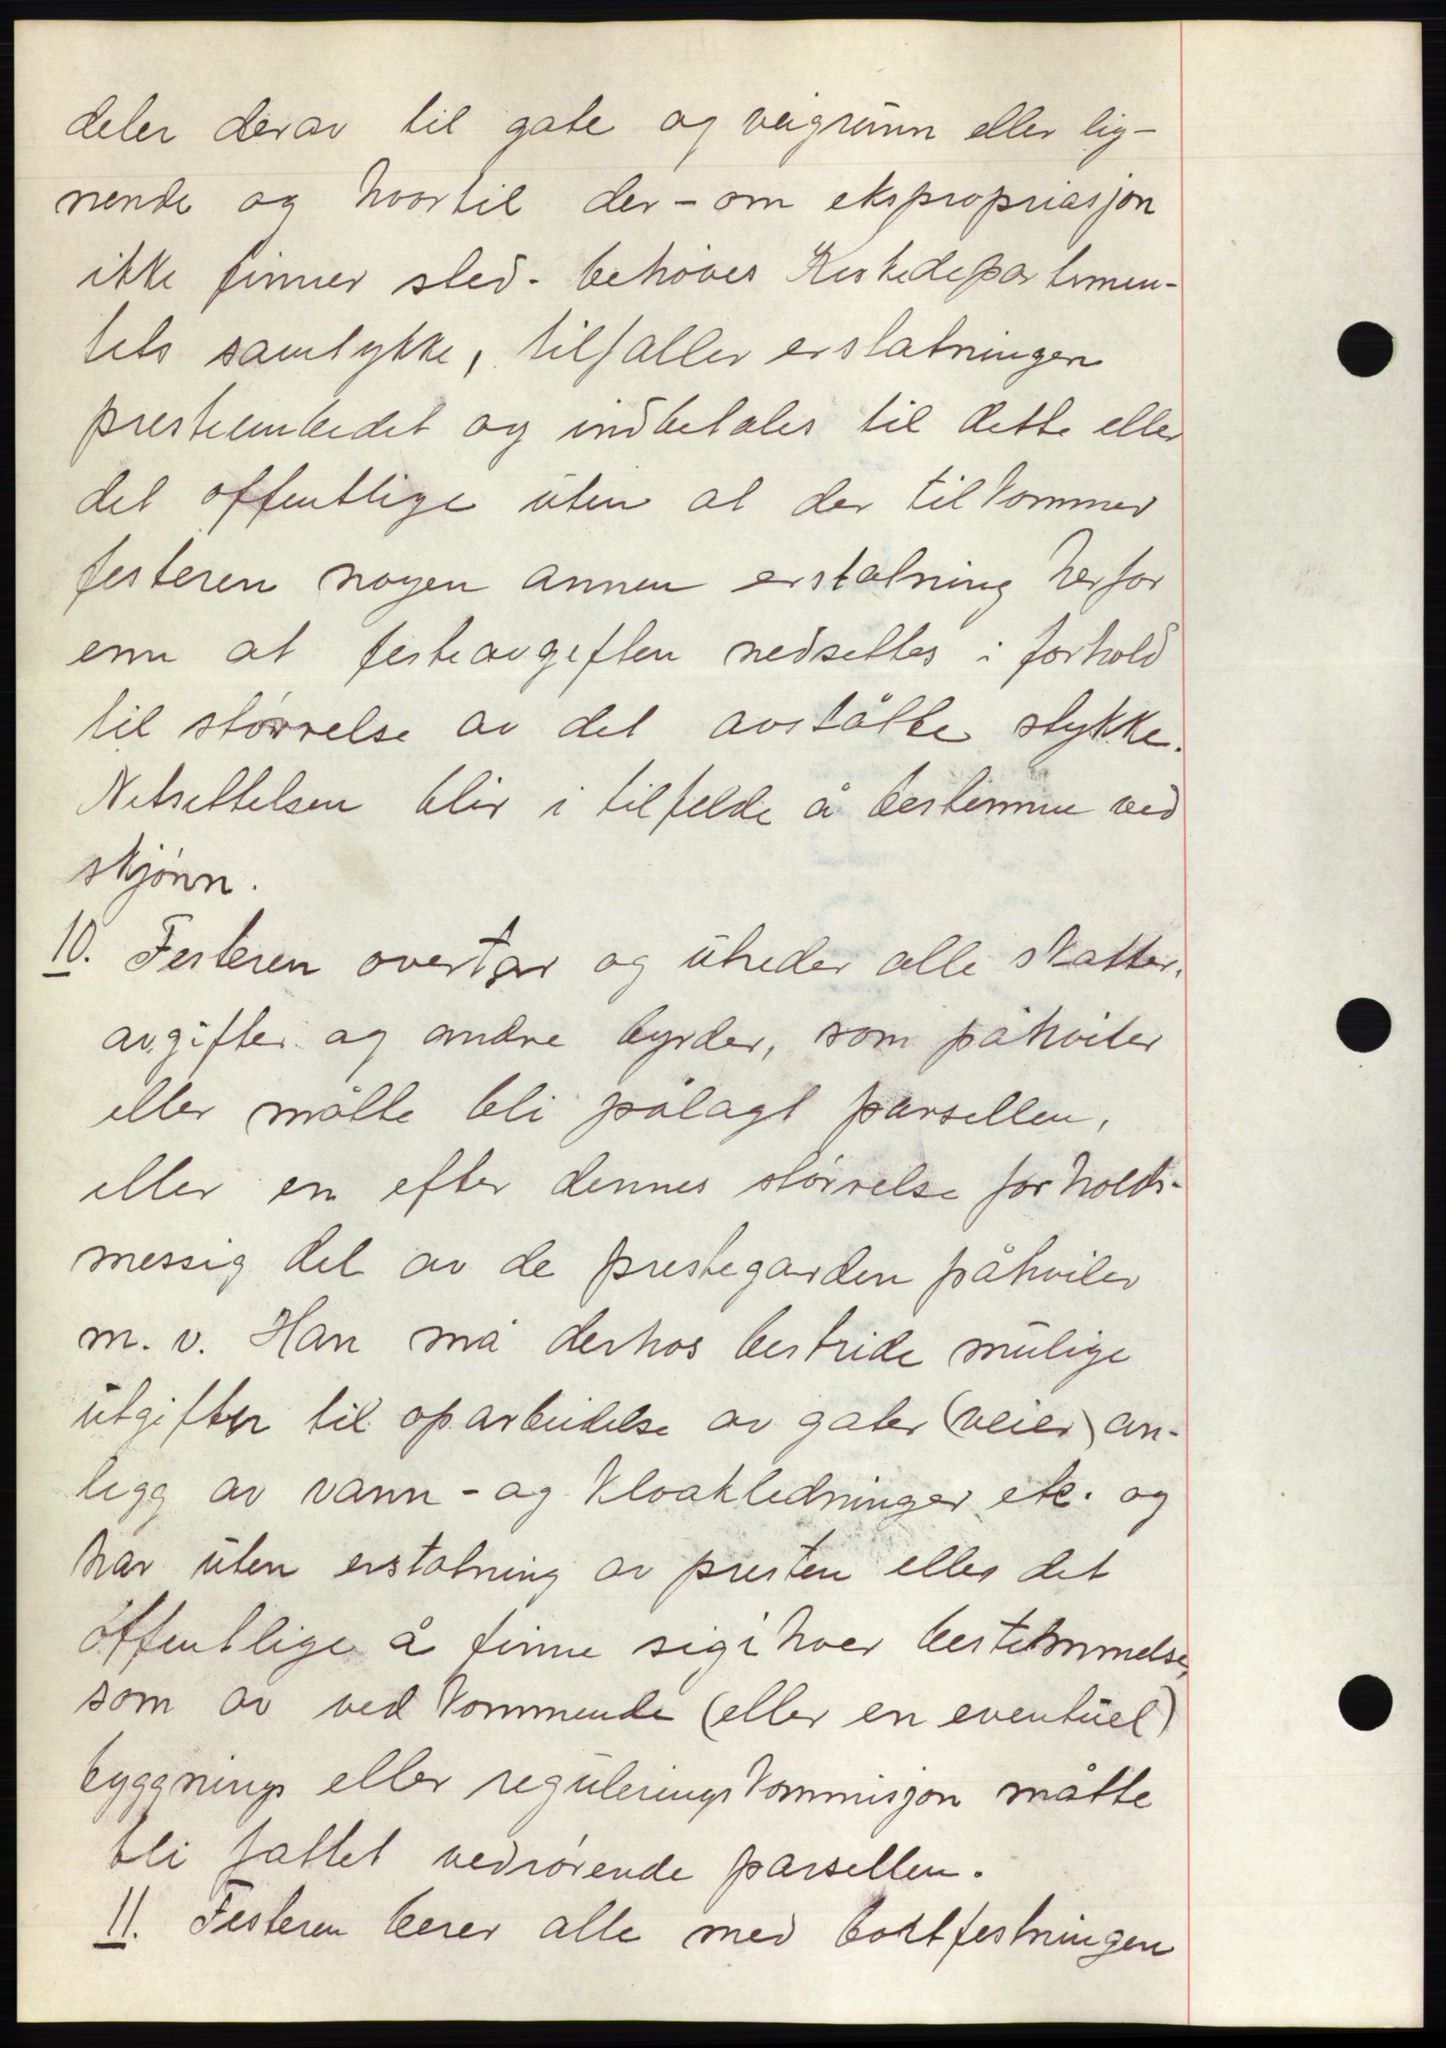 deler derav til gate og veigrunn eller lig-
nende og hvortil der - om ekspropriasjon
ikke finner sted - behøves Kirkedepartemen-
tets samtykke, tilfaller erstatningen
presteembedet og indbetales til dette eller
det offentlige uten at der tilkommer
festeren nogen annen erstatning herfor
enn at festeavgiften nedsettes i forhold
til størrelse av det avståtte stykke.
Netsettelsen blir i tilfelde å bestemme ved
skjønn.
10. Festeren overtar og utreder alle skatter,
avgifter og andre byrder, som påhviler
eller måtte bli pålagt parsellen,
eller en efter dennes størrelse forholds-
messig del av de prestegarden påhviler
m.v. Han må derhos bestride mulige
utgifter til oparbeidelse av gater (veier) an-
legg av vann- og kloakledninger etc. og
har uten erstatning av presten eller det
offentlige å finne sig i hver bestemmelse,
som av vedkommende (eller en eventuel)
byggnings eller reguleringskommisjon måtte
bli fattet vedrørende parsellen.
11. Festeren berer alle med bortfestningen